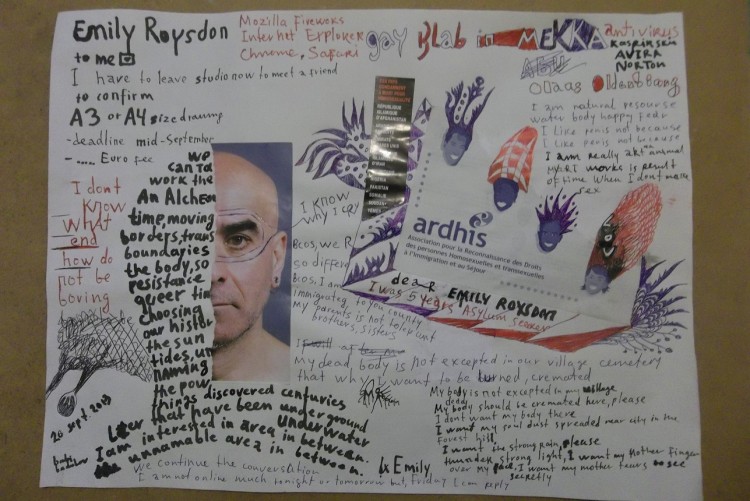 Emily Roysdon
to me
I have to leave studio now to meet a friend
to confirm
A3 or A4 size drawing
-deadline mid-September
- ..... Euro fee
Mozilla Fireworks
Internet Erploker
Chrome, Safari
gay BLab in MEKKA
antivirus
Kaspirsën
AVIRA
NORTON
I am natural resourse
water body happy
I like penis not because
I like penis not because
I am really akt animal
of time when I don't
sex
I dont
Know
What
end
how do
not be
boving
we
can to
work the
An Alchem
time, moving
borders, trans
boundaries
the body, so
resistance
queer tim
choosing
our histor
the sun
tides, un
naming
the pow
things discovered centuries
Later that have been underground
Underwater
I am interested in area in between.
the unnamable area in between.
We continue the conversation
I am not online much tonight or tomorrow but, friday I can reply
20 sept 2013
I know
why I cry
Bcos, we R
so differe
Bcos, I am
immigrated to you county
my parents is not tolerant
brothers, sisters
My dead body is not excepted in our village cemetery
that why I want to be burned, cremated
REPUBLIQUE
ISLAMIQUE
D'AFGHANISTAN
IRAN
NIGERIA
PAKISTAN
SOMALIE
SOUDAN
YEMEN
ardhis
Association pour la Reconnaissance des Droits
des personnes Homosexuelles et transsexuelles
à l'Immigration et au Séjour
dear EMILY ROYSDON
I was 5 years Asylum seeker
My body is not excepted in my village
dead
My body should be cremated here, please
I dont want my body there
I want my soul dust spreaded near city in the
forest hill,
I want the strong rain, please
thunder strong light, I want my mother finger
over my face, I want my mother tears to see
secretly
4x Emily